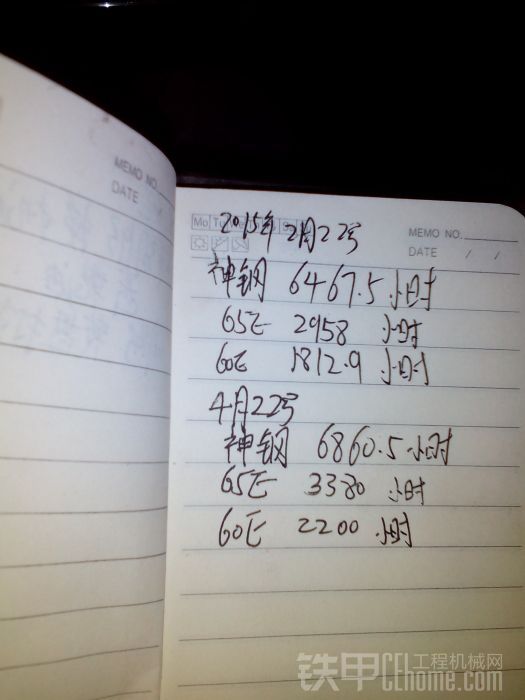 MEMO NO.
DATE
Mo Tu
2015年2月22号
MEMO NO.
DATE / /
神钢 6467.5 小时
65E 2958 小时
60E 1812.9 小时
4月22号
神钢 6860.5 小时
65E 3380 小时
60E 2200 小时
铁甲 工程机械网
CEhome.com